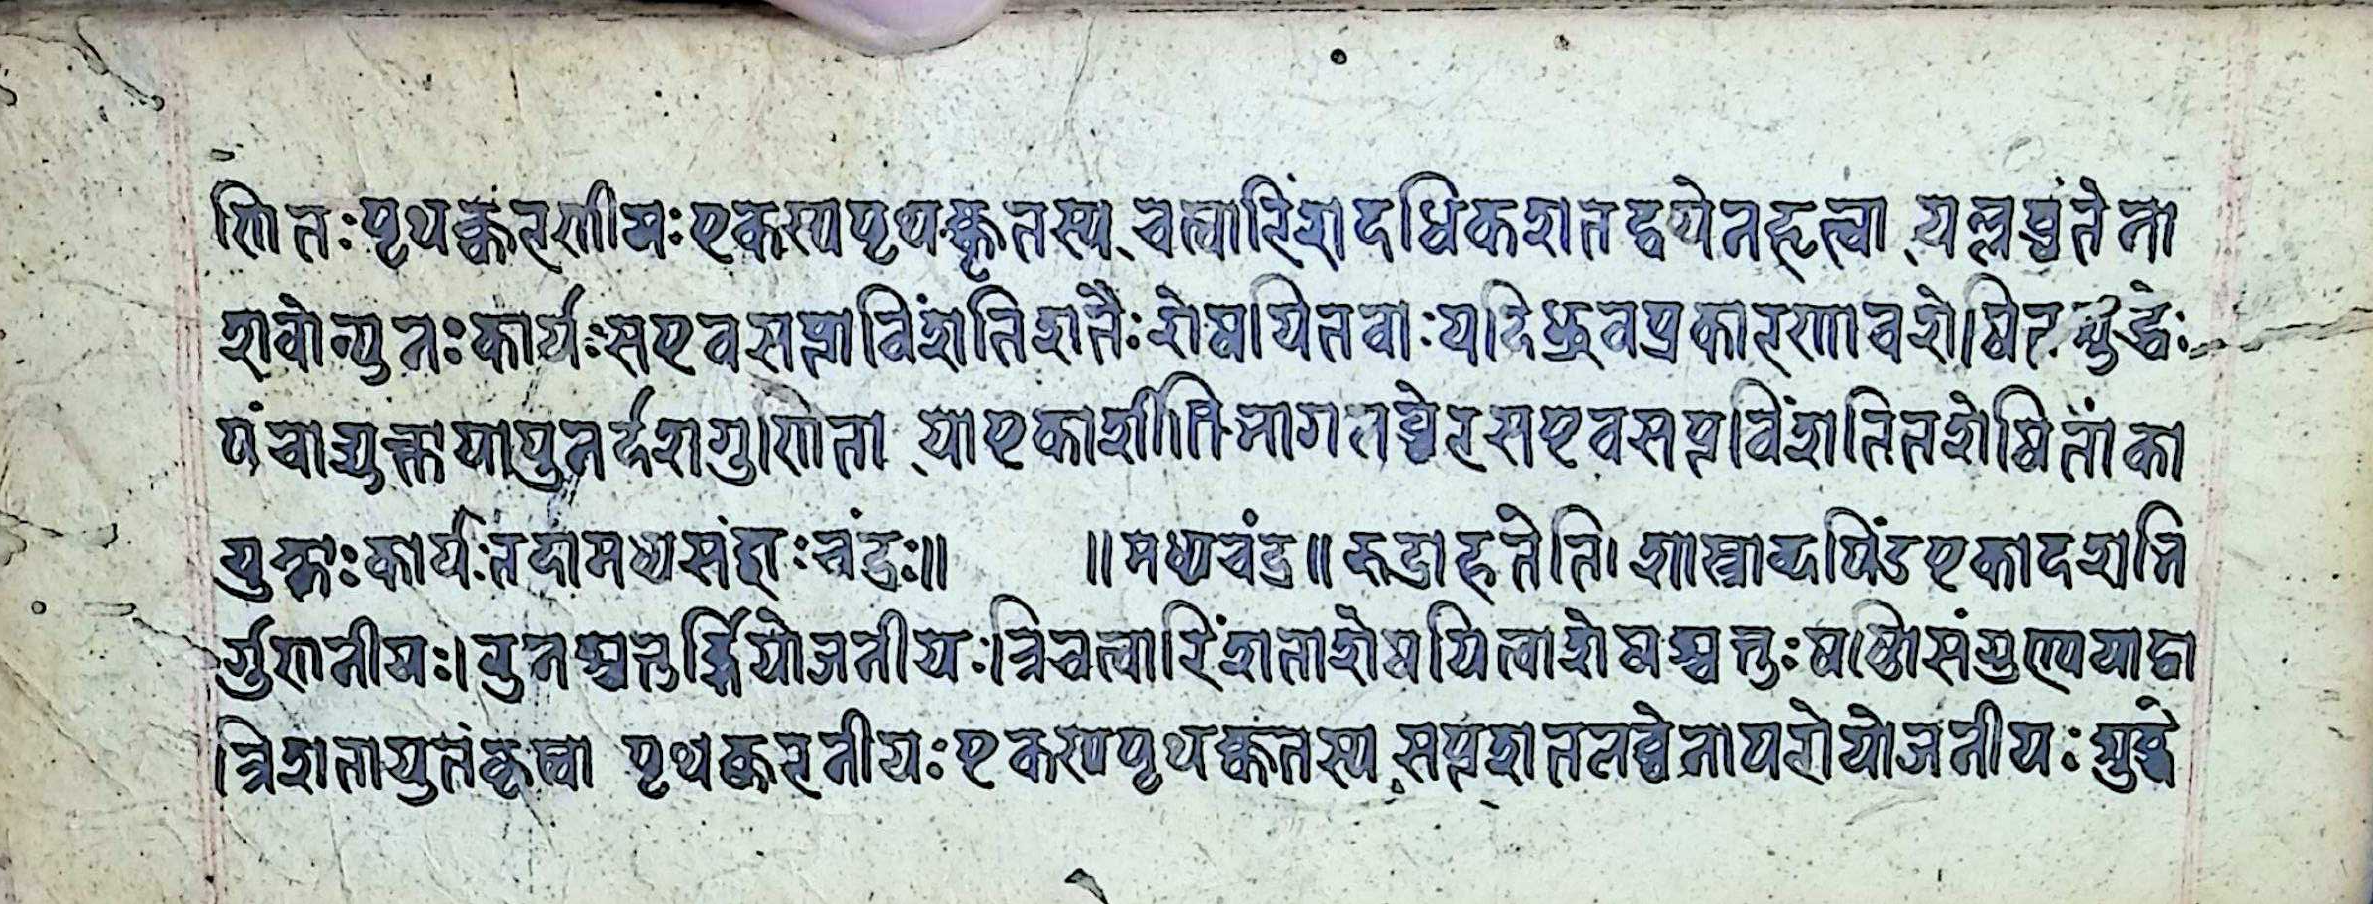 णितः पृथक्करणीयः एकस्यपृथक्कृतस्य चत्वारिंशदधिकशतद्वयेनहृत्वा यल्लब्धंतेना
शवोन्युनः कार्यः सएवसप्ताविंशतिशतैः शेषयितवाः यदिध्रुवप्रकारणावशेषित
पंचाद्युक्तायापुनर्दशगुणिता याएकाशीतिभागलब्धेन सएवसप्तविंशतितशेषितांका
युक्ताः कार्यः तदामध्यसंज्ञाः चंद्रः॥ ॥मध्यचंद्र॥ रुद्राहतेति। शास्त्राब्दपिंडएकादशभि
र्गुणनीयः। पुनश्चतुर्भिर्योजनीयः त्रिचत्वारिंशताशेषयित्वाशेषश्चतुःषष्ठिसंगुण्ययाद्वा
त्रिशतायुतंकृत्वा पृथक्करनीयः एकस्यपृथक्कतस्य सप्तशतलब्धेनापरोयोजनीयः